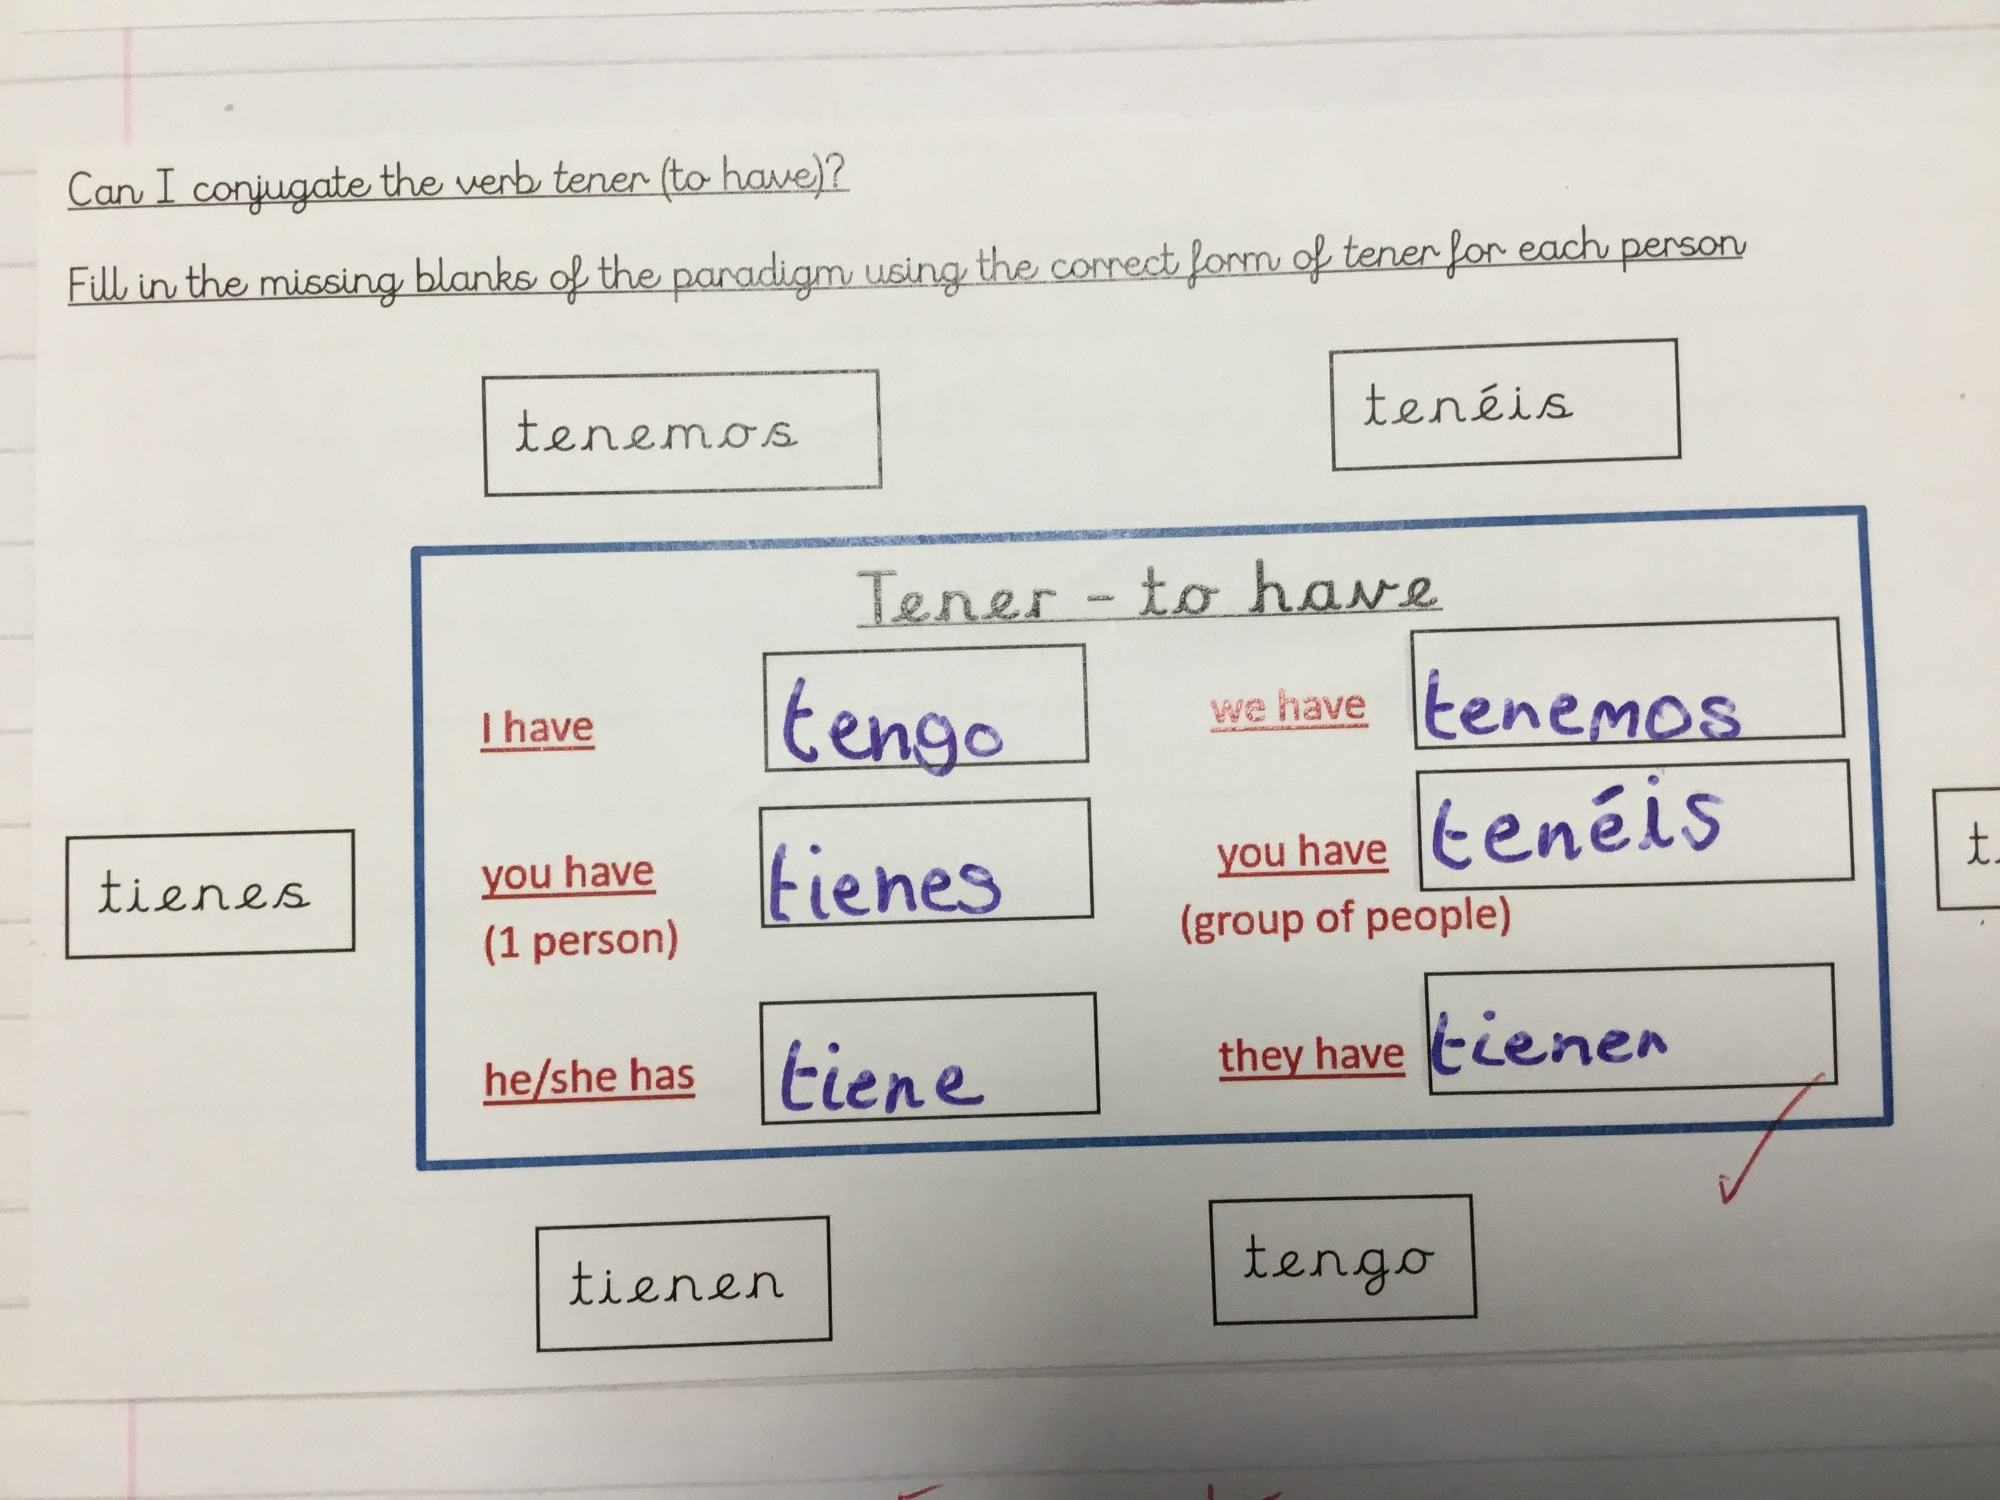 Can I conjugate the verb tener (to have)?
Fill in the missing blanks of the paradigm using the correct form of tener for each person
tenemos
tenéis
Tener - to have
I have tengo
we have tenemos
you have tienes
(1 person)
you have tenéis
(group of people)
he/she has tiene
they have tienen
tienes
tienen
tengo